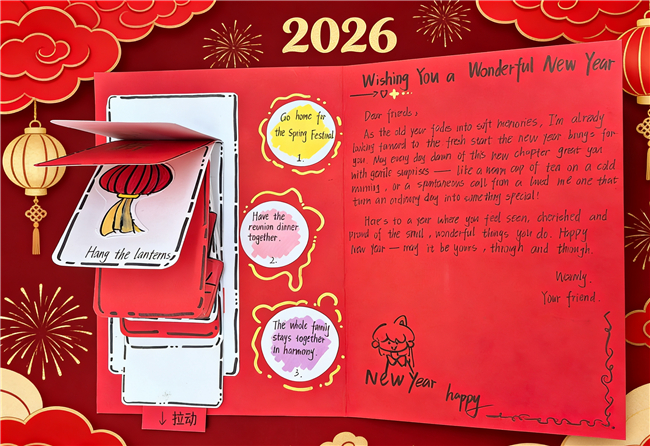 2026
Go home for
the Spring Festival.
1.
Have the
reunion dinner
together.
2.
The whole family
stays together
in harmony.
3.
Hang the lanterns
↓ 拉动
Wishing You a Wonderful New Year
Dear friends,
As the old year fades into soft memories, I'm already
looking forward to the fresh start the new year brings for
you. May every day dawn of this new chapter greet you
with gentle surprises — like a warm cup of tea on a cold
morning, or a spontaneous call from a loved one that
turn an ordinary day into something special!
Here's to a year where you feel seen, cherished and
proud of the small, wonderful things you do. Happy
New Year — may it be yours, through and through.
Your friend.
New Year happy